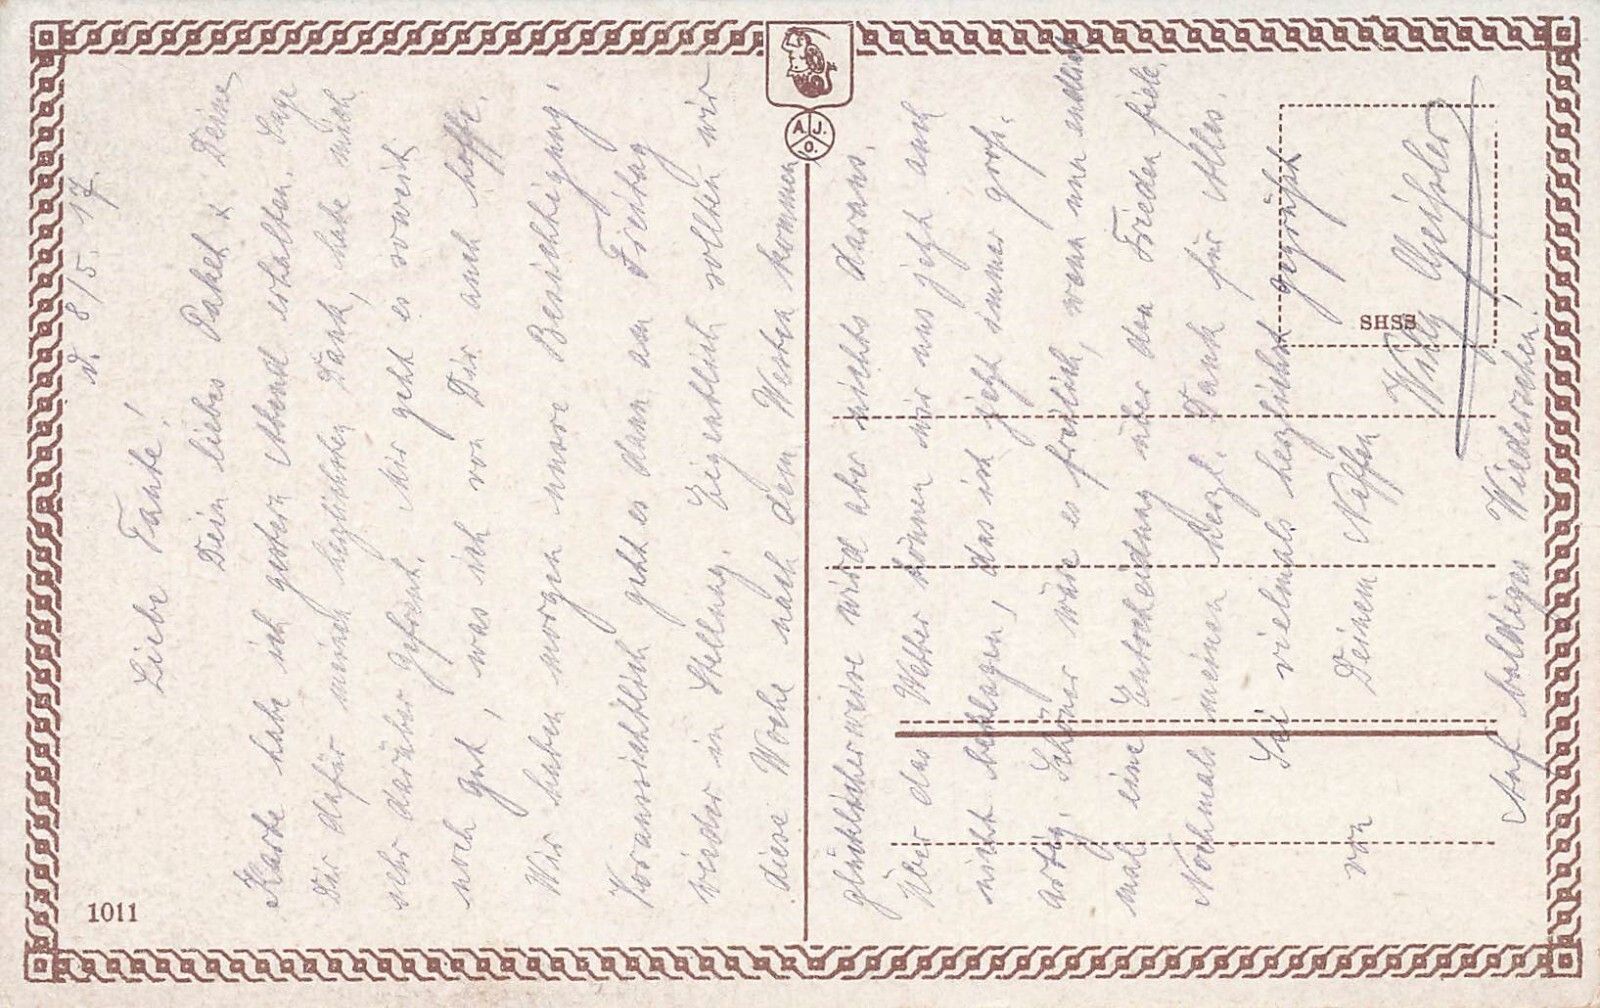 d. 8/5. 17.
Liebe Tante!
Dein liebes Paket & Deine
Karte habe ich gestern Abend erhalten. Sage
Dir dafür meinen herzlichsten Dank, habe mich
sehr darüber gefreut. Mir geht es soweit
noch gut, was ich von Dir auch hoffe.
Wir haben morgen unsre Besichtigung,
Voraussichtlich geht es dann am Freitag
wieder in Stellung. Eigentlich sollten wir
diese Woche nach dem Westen kommen
glücklicherweise wird aber nichts daraus.
Über das Wetter können wir uns jetzt auch
nicht beklagen, das ist jetzt immer groß-
artig. Schöner wäre es freilich, wenn nun endlich
mal eine Entscheidung über den Frieden fiele.
Nochmals meinen herzl. Dank für Alles.
Sei vielmals herzlichst gegrüßt
von Deinem Neffen
Willy
Auf baldiges Wiedersehen!
A. J. O.
SHSS
1011